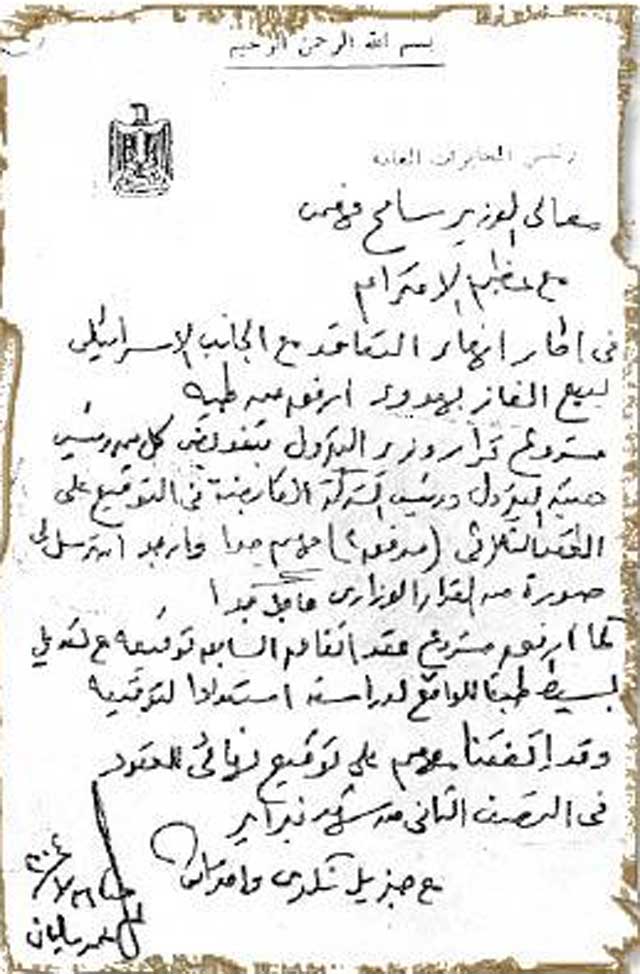 بسم الله الرحمن الرحيم
رئيس المخابرات العامة
معالى الوزير سامح فهمى
مع عظيم الاحترام
فى اطار انهاء التعاقد مع الجانب الاسرائيلى
لبيع الغاز بهدوء ارفق طيه
مشروع قرار وزير البترول بتفويض كل من رئيس
هيئة البترول ورئيس الشركة القابضة فى التوقيع على
العقد الثلاثى (مرفق ١) مهم جدا وارجو ان ترسل لى
صورة من القرار الوزارى عاجل جدا
كما ارفق مشروع عقد اتفاق السابق توقيعه مع تعديل
بسيط طبقا للواقع لدراسته استعدادا لتوقيعه
وقد اتفقنا معهم على توقيع نهائى للعقود
فى النصف الثانى من شهر فبراير
مع جزيل شكرى واحترامى
عمر سليمان